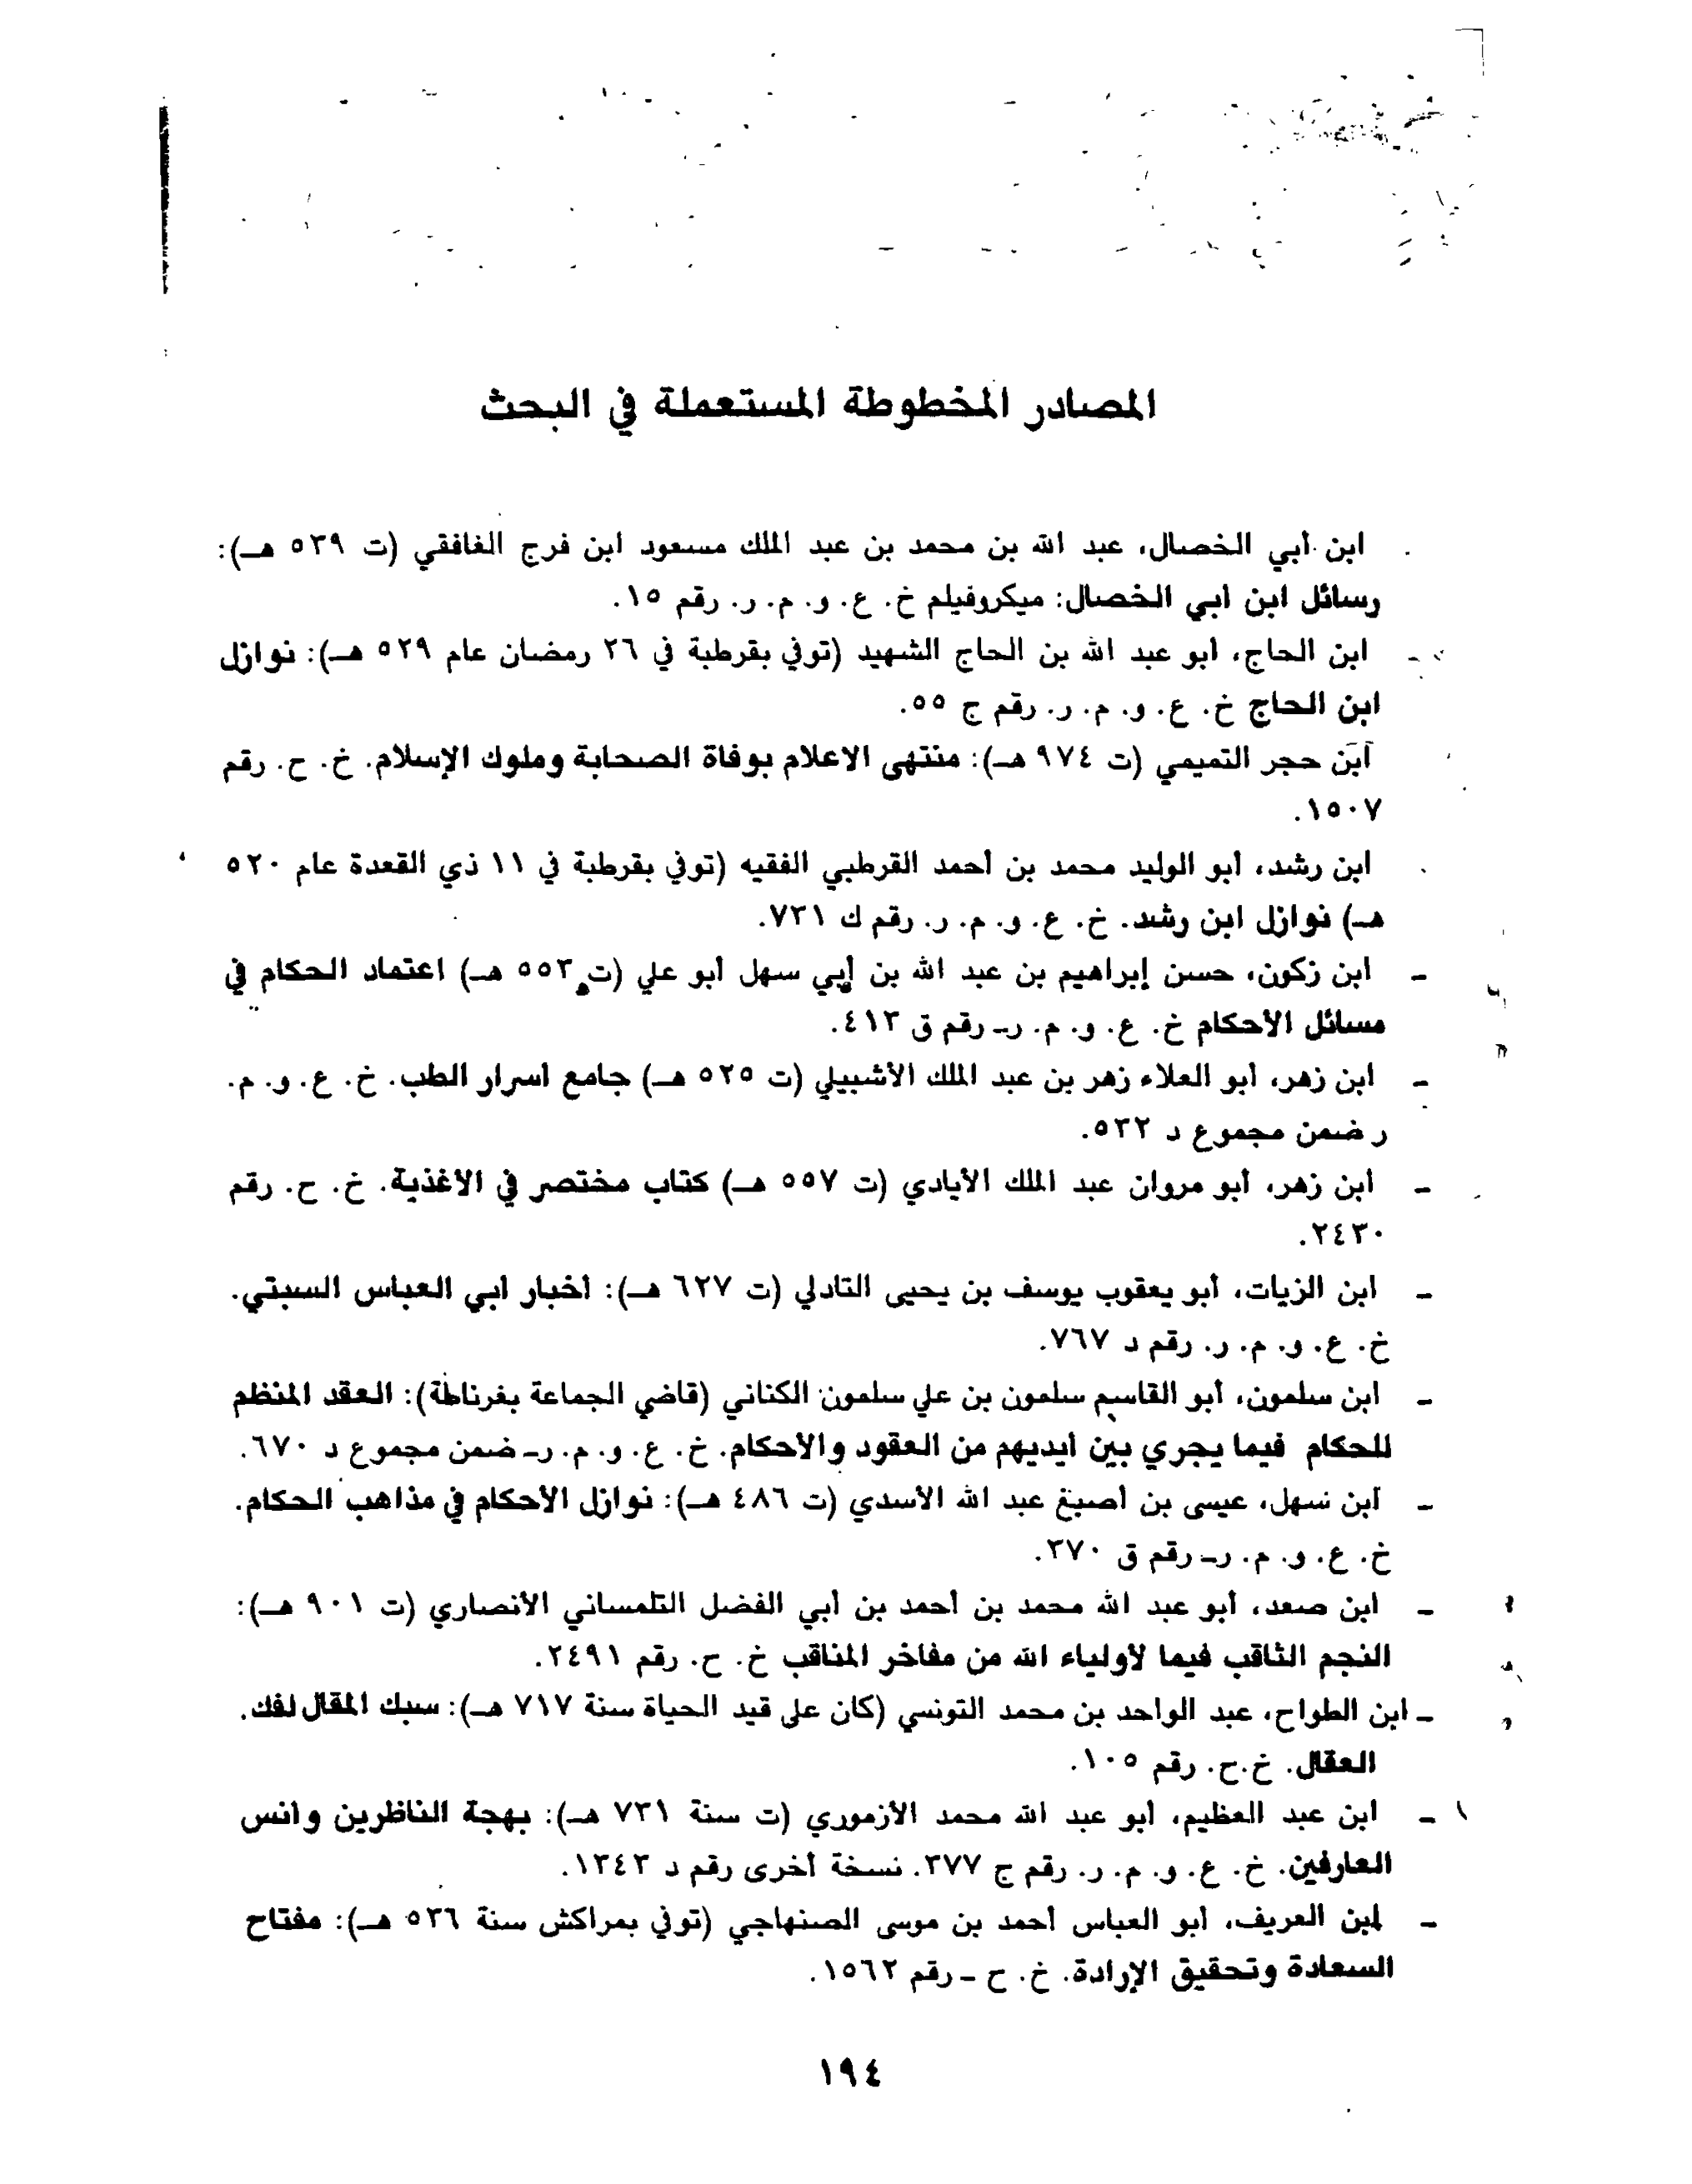 المصادر المخطوطة المستعملة في البحث
ابن أبي الخصال، عبد الله بن محمد بن عبد الملك مسعود ابن فرج الغافقي (ت ٥٣٩ هـ):
رسائل ابن ابي الخصال: ميكروفيلم خ. ع. و. م. ر. رقم ١٥.
- ابن الحاج، أبو عبد الله بن الحاج الشهيد (توفي بقرطبة في ٢٦ رمضان عام ٥٢٩ هـ): نوازل
ابن الحاج خ. ع. و. م. ر. رقم ج ٥٥.
ابن حجر التميمي (ت ٩٧٤ هـ): منتهى الاعلام بوفاة الصحابة وملوك الإسلام. خ. ح. رقم
١٥٠٧.
ابن رشد، أبو الوليد محمد بن أحمد القرطبي الفقيه (توفي بقرطبة في ١١ ذي القعدة عام ٥٢٠
هـ) نوازل ابن رشد. خ. ع. و. م. ر. رقم ك ٧٣١.
- ابن زكون، حسن إبراهيم بن عبد الله بن أبي سهل أبو علي (ت ٥٥٣ هـ) اعتماد الحكام في
مسائل الأحكام خ. ع. و. م. ر- رقم ق ٤١٣.
- ابن زهر، أبو العلاء زهر بن عبد الملك الأشبيلي (ت ٥٢٥ هـ) جامع اسرار الطب. خ. ع. و. م.
ر ضمن مجموع د ٥٣٢.
- ابن زهر، أبو مروان عبد الملك الأيادي (ت ٥٥٧ هـ) كتاب مختصر في الأغذية. خ. ح. رقم
٢٤٣٠.
- ابن الزيات، أبو يعقوب يوسف بن يحيى التادلي (ت ٦٢٧ هـ): اخبار ابي العباس السبتي.
خ. ع. و. م. ر. رقم د ٧٦٧.
- ابن سلمون، أبو القاسم سلمون بن علي سلمون الكناني (قاضي الجماعة بغرناطة): العقد المنظم
للحكام فيما يجري بين ايديهم من العقود والأحكام. خ. ع. و. م. ر- ضمن مجموع د ٦٧٠.
- ابن سهل، عيسى بن أصبغ عبد الله الأسدي (ت ٤٨٦ هـ): نوازل الأحكام في مذاهب الحكام.
خ. ع. و. م. ر- رقم ق ٣٧٠.
- ابن صعد، أبو عبد الله محمد بن أحمد بن أبي الفضل التلمساني الأنصاري (ت ٩٠١ هـ):
النجم الثاقب فيما لأولياء الله من مفاخر المناقب خ. ح. رقم ٢٤٩١.
- ابن الطواح، عبد الواحد بن محمد التونسي (كان على قيد الحياة سنة ٧١٧ هـ): سبك المقال لفك.
العقال. خ.ح. رقم ١٠٥.
- ابن عبد العظيم، أبو عبد الله محمد الأزموري (ت سنة ٧٣١ هـ): بهجة الناظرين وانس
العارفين. خ. ع. و. م. ر. رقم ج ٣٧٧. نسخة أخرى رقم د ١٣٤٣.
- ابن العريف، أبو العباس أحمد بن موسى الصنهاجي (توفي بمراكش سنة ٥٣٦ هـ): مفتاح
السعادة وتحقيق الإرادة. خ. ح - رقم ١٥٦٢.
١٩٤